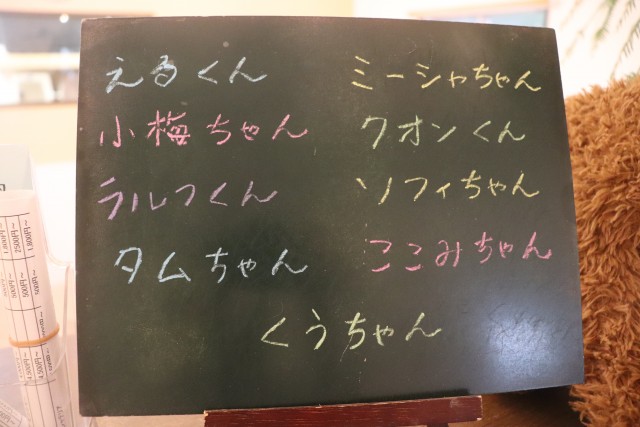 えるくん
小梅ちゃん
ラルフくん
タムちゃん
ミーシャちゃん
クオンくん
ソフィちゃん
ここみちゃん
くうちゃん